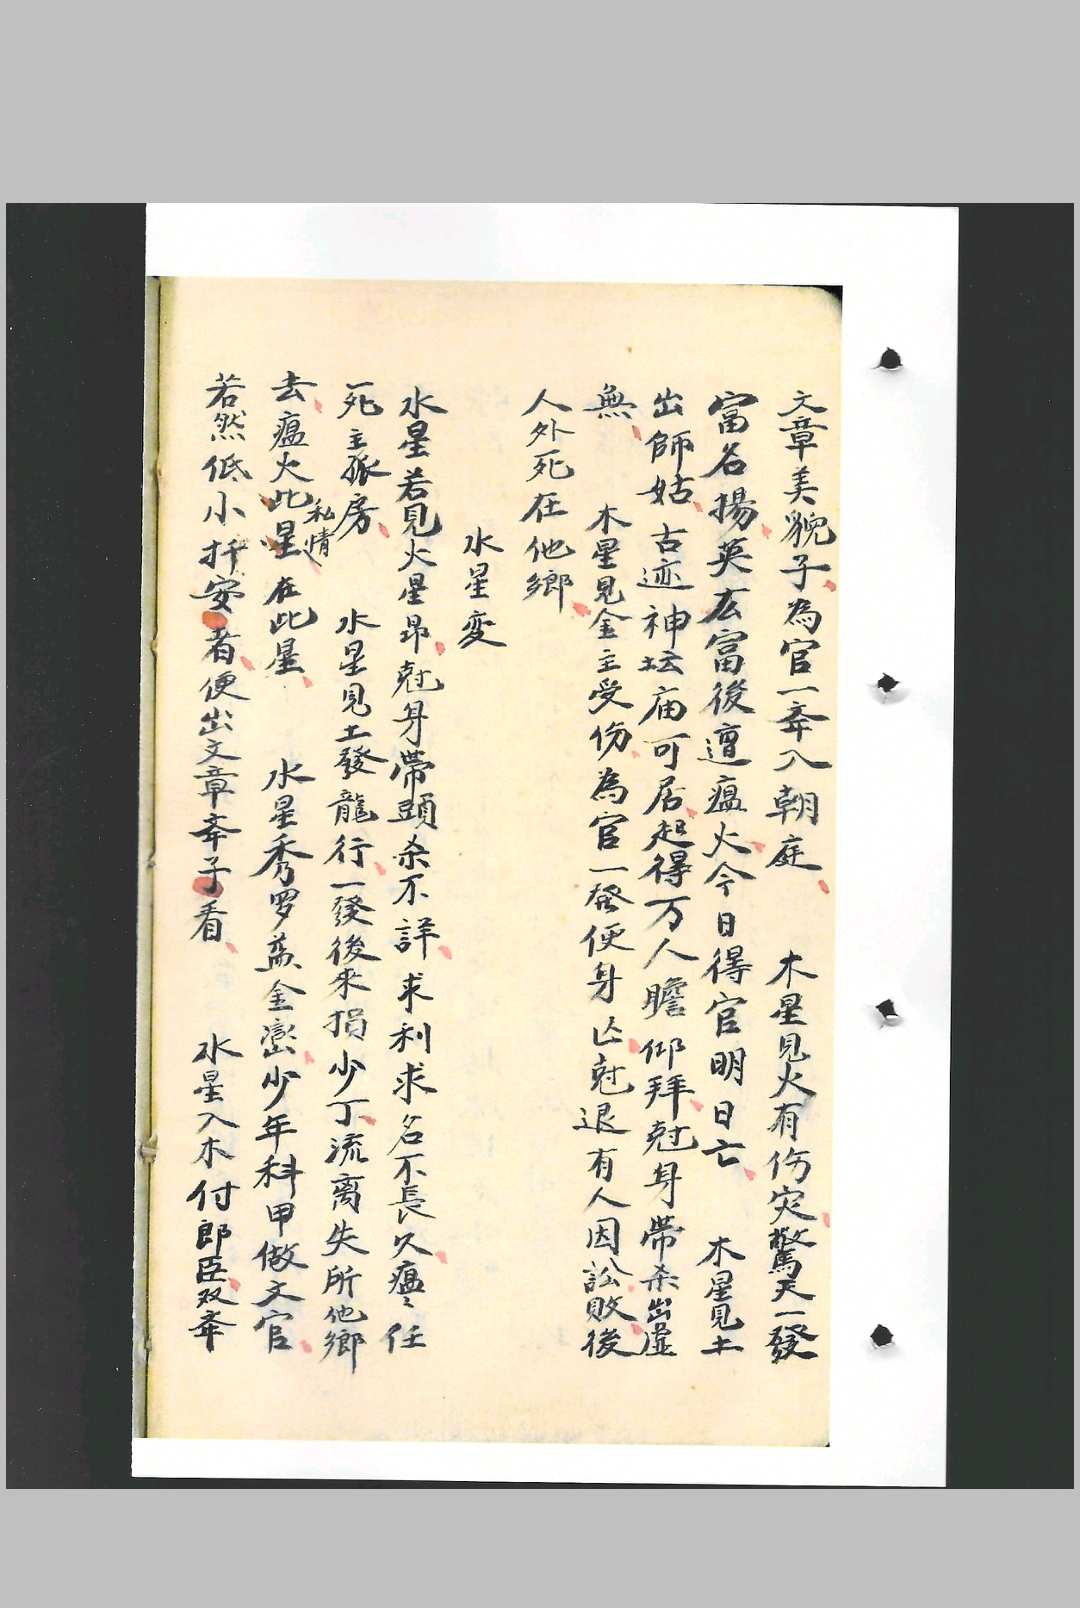 文章美貌子為官一舉入朝庭　木星見火有伤灾驚天一發
富名揚英広富後遭瘟火今日得官明日亡　木星見土
出師姑古迹神坛庙可居起得万人瞻仰拜尅身带杀出虛
無　木星見金主受伤為官一發便身亡尅退有人因訟敗後
人外死在他鄉
水星变
水星若見火星昂尅身帶頭杀不詳求利求名不長久瘟〻任
死主孤房　水星見土發龍行一發後来損少丁流离失所他鄉
去瘟火此星私情在此星　水星秀罗盖金巒少年科甲做文官
若然低小扦安著便出文章举子看　水星入木付郎臣双举